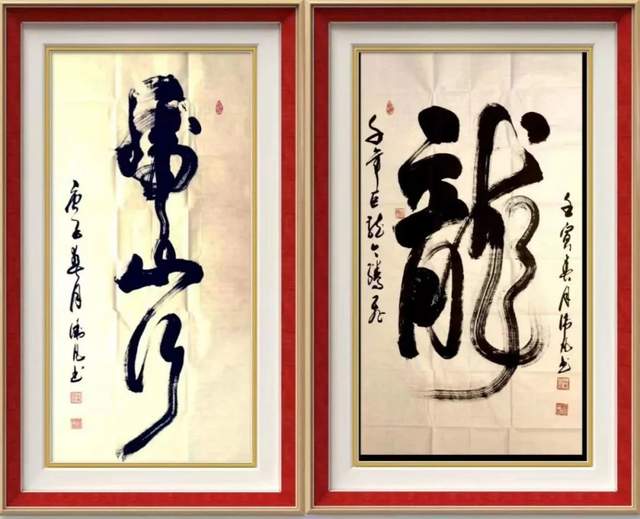 虎山行
庚子
月
書
龍
千年巨龍今騰飛
壬寅春月
書